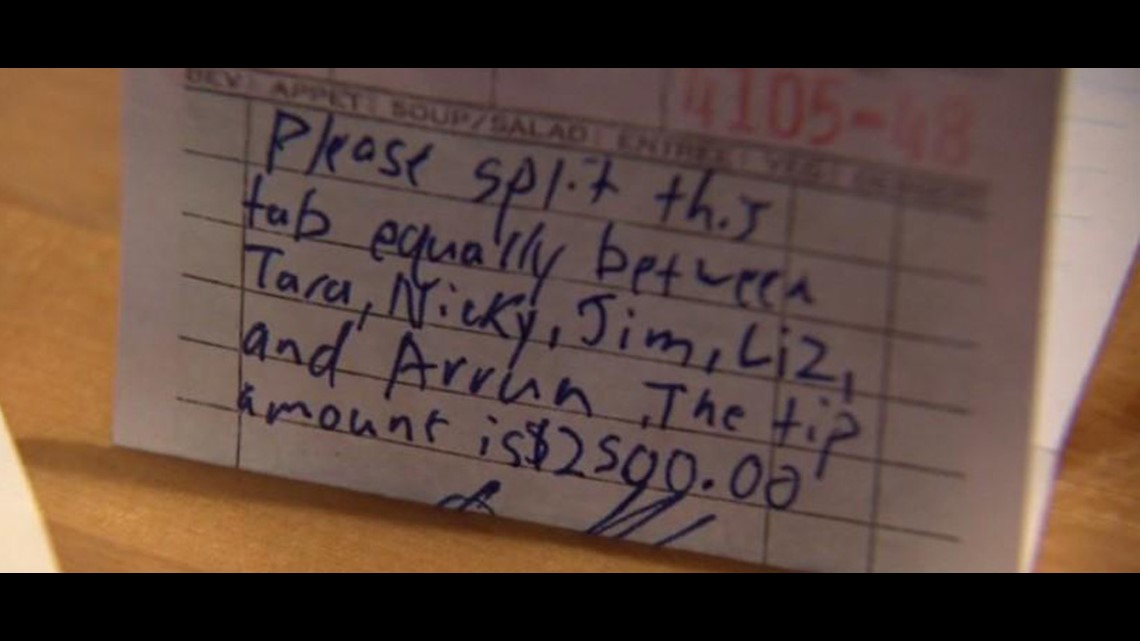 4105-48
BEV. APPET. SOUP/SALAD ENTREE VEG. DESSERT
Please split this
tab equally between
Tara, Nicky, Jim, Liz,
and Arrun. The tip
amount is $2500.00